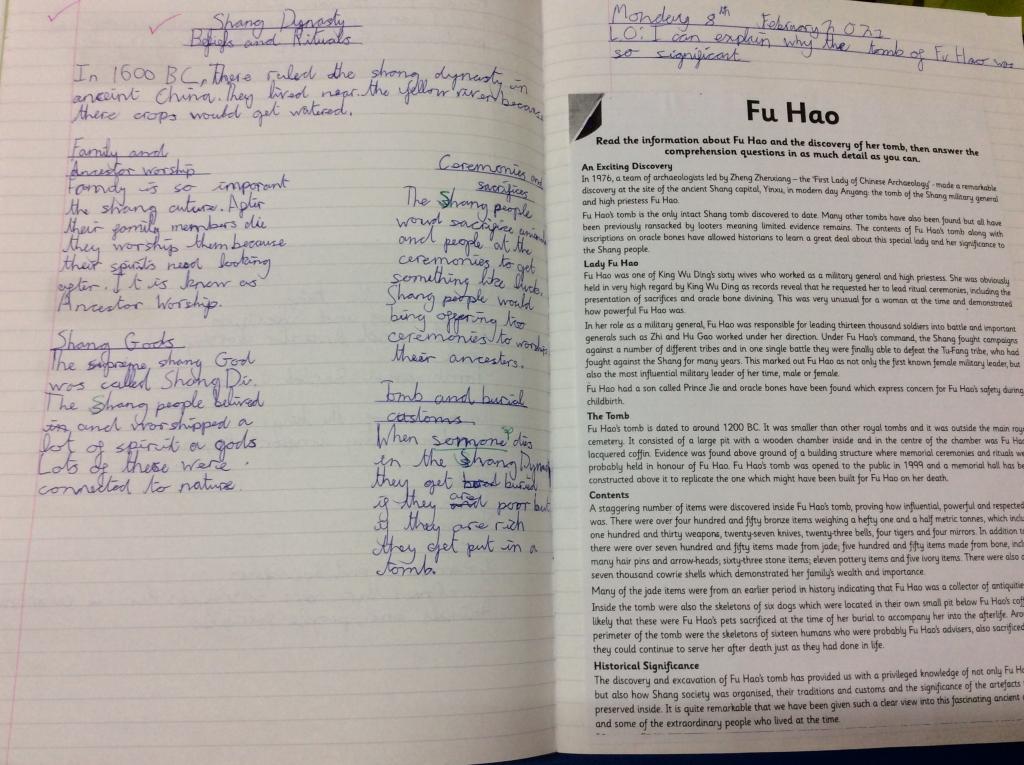 Shang Dynasty
Beliefs and Rituals
In 1600 BC, There ruled the shang dynasty in
anceint China. They lived near the yellow river because
there crops would get watered.
Family and
Ancestor worship
Family is so imporant
the shang cuture. After
their family members die
they worship them because
their spirits need looking
after. It is know as
Ancestor Worship.
Shang Gods
The supreme, shang God
was called Shang Di.
The Shang people belived
in and worshipped a
lot of spirit a gods
Lots of these were
connected to nature.
Ceremonies and
sacrifices
The Shang people
woud sacrifice
and people at the
ceremonies to get
something like luck.
Shang people would
bing offering too
ceremonies to worship
their ancesters.
Tomb and burial
customs
When somone dies
in the Shang
they get buried
if they are poor but
if they are rich
they get put in a
tomb.
Monday 8th February 2021
LO: I can explain why the tomb of Fu Hao was
so significant
Fu Hao
Read the information about Fu Hao and the discovery of her tomb, then answer the
comprehension questions in as much detail as you can.
An Exciting Discovery
In 1976, a team of archaeologists led by Zheng Zhenxiang – the 'First Lady of Chinese Archaeology' - made a remarkable
discovery at the site of the ancient Shang capital, Yinxu, in modern day Anyang: the tomb of the Shang military general
and high priestess Fu Hao.
Fu Hao's tomb is the only intact Shang tomb discovered to date. Many other tombs have also been found but all have
been previously ransacked by looters meaning limited evidence remains. The contents of Fu Hao's tomb along with
inscriptions on oracle bones have allowed historians to learn a great deal about this special lady and her significance to
the Shang people.
Lady Fu Hao
Fu Hao was one of King Wu Ding's sixty wives who worked as a military general and high priestess. She was obviously
held in very high regard by King Wu Ding as records reveal that he requested her to lead ritual ceremonies, including the
presentation of sacrifices and oracle bone divining. This was very unusual for a woman at the time and demonstrated
how powerful Fu Hao was.
In her role as a military general, Fu Hao was responsible for leading thirteen thousand soldiers into battle and important
generals such as Zhi and Hu Gao worked under her direction. Under Fu Hao's command, the Shang fought campaigns
against a number of different tribes and in one single battle they were finally able to defeat the Tu-Fang tribe, who had
fought against the Shang for many years. This marked out Fu Hao as not only the first known female military leader, but
also the most influential military leader of her time, male or female.
Fu Hao had a son called Prince Jie and oracle bones have been found which express concern for Fu Hao's safety during
childbirth.
The Tomb
Fu Hao's tomb is dated to around 1200 BC. It was smaller than other royal tombs and it was outside the main roy
cemetery. It consisted of a large pit with a wooden chamber inside and in the centre of the chamber was Fu Hao
lacquered coffin. Evidence was found above ground of a building structure where memorial ceremonies and rituals we
probably held in honour of Fu Hao. Fu Hao's tomb was opened to the public in 1999 and a memorial hall has be
constructed above it to replicate the one which might have been built for Fu Hao on her death.
Contents
A staggering number of items were discovered inside Fu Hao's tomb, proving how influential, powerful and respected
was. There were over four hundred and fifty bronze items weighing a hefty one and a half metric tonnes, which inclu
one hundred and thirty weapons, twenty-seven knives, twenty-three bells, four tigers and four mirrors. In addition to
there were over seven hundred and fifty items made from jade; five hundred and fifty items made from bone, incl
many hair pins and arrow-heads; sixty-three stone items; eleven pottery items and five ivory items. There were also o
seven thousand cowrie shells which demonstrated her family's wealth and importance.
Many of the jade items were from an earlier period in history indicating that Fu Hao was a collector of antiquitie
Inside the tomb were also the skeletons of six dogs which were located in their own small pit below Fu Hao's coff
likely that these were Fu Hao's pets sacrificed at the time of her burial to accompany her into the afterlife. Aro
perimeter of the tomb were the skeletons of sixteen humans who were probably Fu Hao's advisers, also sacrificed
they could continue to serve her after death just as they had done in life.
Historical Significance
The discovery and excavation of Fu Hao's tomb has provided us with a privileged knowledge of not only Fu Ha
but also how Shang society was organised, their traditions and customs and the significance of the artefacts
preserved inside. It is quite remarkable that we have been given such a clear view into this fascinating ancient
and some of the extraordinary people who lived at the time.